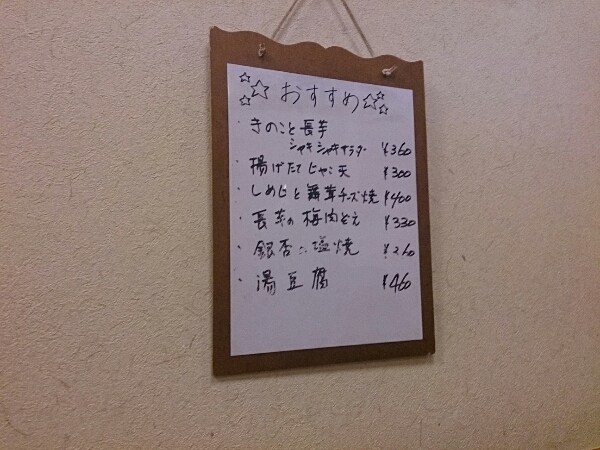 ☆☆☆おすすめ☆☆☆
・きのこと長芋
シャキシャキサラダー ¥360
・揚げたてじゃこ天 ¥300
・しめじと舞茸チーズ焼 ¥400
・長芋の梅肉和え ¥330
・銀杏の塩焼 ¥260
・湯豆腐 ¥460